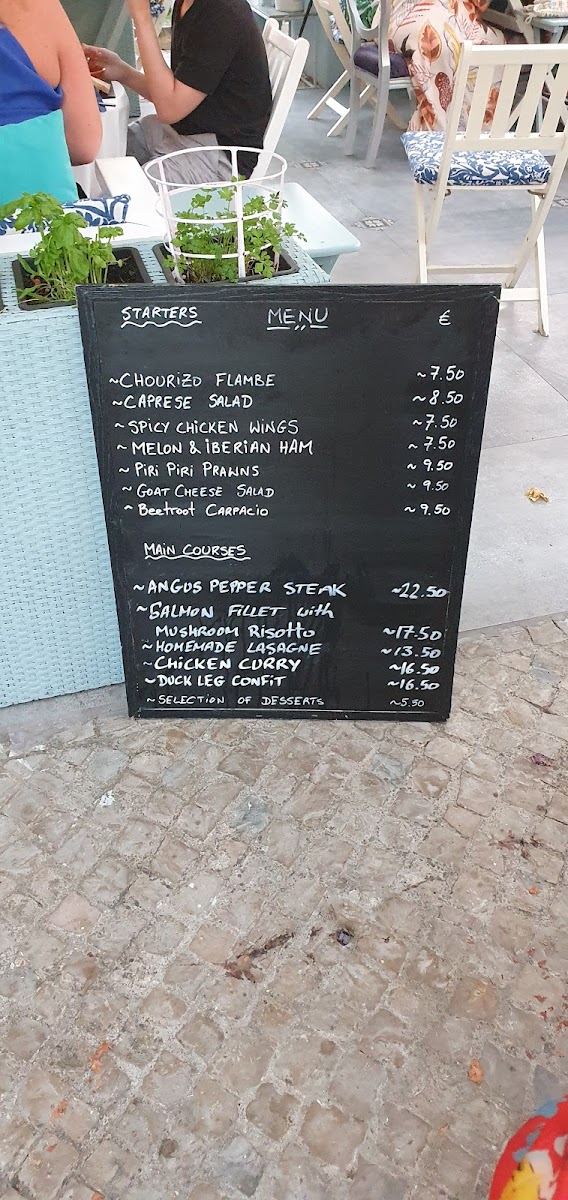 STARTERS MENU €
~CHOURIZO FLAMBE ~7.50
~CAPRESE SALAD ~8.50
~SPICY CHICKEN WINGS ~7.50
~MELON & IBERIAN HAM ~7.50
~PIRI PIRI PRAWNS ~9.50
~GOAT CHEESE SALAD ~9.50
~Beetroot CARPACIO ~9.50
MAIN COURSES
~ANGUS PEPPER STEAK ~22.50
~SALMON FILLET with
MUSHROOM RISOTTO ~17.50
~HOMEMADE LASAGNE ~13.50
~CHICKEN CURRY ~16.50
~DUCK LEG CONFIT ~16.50
~SELECTION OF DESSERTS ~5.50